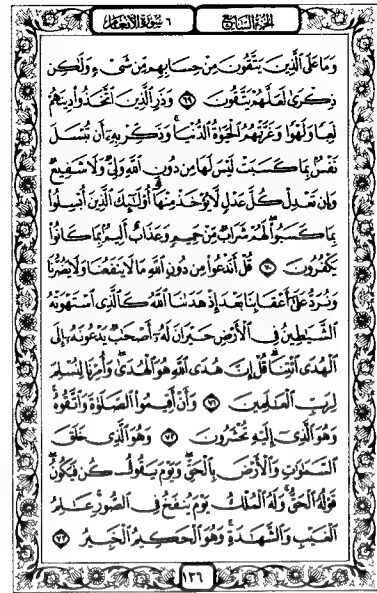 الجزء السابع ٦ سورة الأنعام
وَمَا عَلَى الَّذِينَ يَتَّقُونَ مِنْ حِسَابِهِم مِّن شَىْءٍ وَلَٰكِن
ذِكْرَىٰ لَعَلَّهُمْ يَتَّقُونَ ٦٩ وَذَرِ الَّذِينَ اتَّخَذُوا دِينَهُمْ
لَعِبًا وَلَهْوًا وَغَرَّتْهُمُ الْحَيَوٰةُ الدُّنْيَا ۚ وَذَكِّرْ بِهِ أَن تُبْسَلَ
نَفْسٌ بِمَا كَسَبَتْ لَيْسَ لَهَا مِن دُونِ اللَّهِ وَلِىٌّ وَلَا شَفِيعٌ
وَإِن تَعْدِلْ كُلَّ عَدْلٍ لَّا يُؤْخَذْ مِنْهَا ۗ أُولَٰئِكَ الَّذِينَ أُبْسِلُوا
بِمَا كَسَبُوا ۖ لَهُمْ شَرَابٌ مِّنْ حَمِيمٍ وَعَذَابٌ أَلِيمٌ بِمَا كَانُوا
يَكْفُرُونَ ٧٠ قُلْ أَنَدْعُوا مِن دُونِ اللَّهِ مَا لَا يَنفَعُنَا وَلَا يَضُرُّنَا
وَنُرَدُّ عَلَىٰ أَعْقَابِنَا بَعْدَ إِذْ هَدَىٰنَا اللَّهُ كَالَّذِى اسْتَهْوَتْهُ
الشَّيَٰطِينُ فِى الْأَرْضِ حَيْرَانَ لَهُ أَصْحَٰبٌ يَدْعُونَهُ إِلَى
الْهُدَى ائْتِنَا ۗ قُلْ إِنَّ هُدَى اللَّهِ هُوَ الْهُدَىٰ ۖ وَأُمِرْنَا لِنُسْلِمَ
لِرَبِّ الْعَٰلَمِينَ ٧١ وَأَنْ أَقِيمُوا الصَّلَوٰةَ وَاتَّقُوهُ ۚ
وَهُوَ الَّذِى إِلَيْهِ تُحْشَرُونَ ٧٢ وَهُوَ الَّذِى خَلَقَ
السَّمَٰوَٰتِ وَالْأَرْضَ بِالْحَقِّ ۖ وَيَوْمَ يَقُولُ كُن فَيَكُونُ ۚ
قَوْلُهُ الْحَقُّ ۚ وَلَهُ الْمُلْكُ يَوْمَ يُنفَخُ فِى الصُّورِ ۚ عَٰلِمُ
الْغَيْبِ وَالشَّهَٰدَةِ ۚ وَهُوَ الْحَكِيمُ الْخَبِيرُ ٧٣
١٣٦